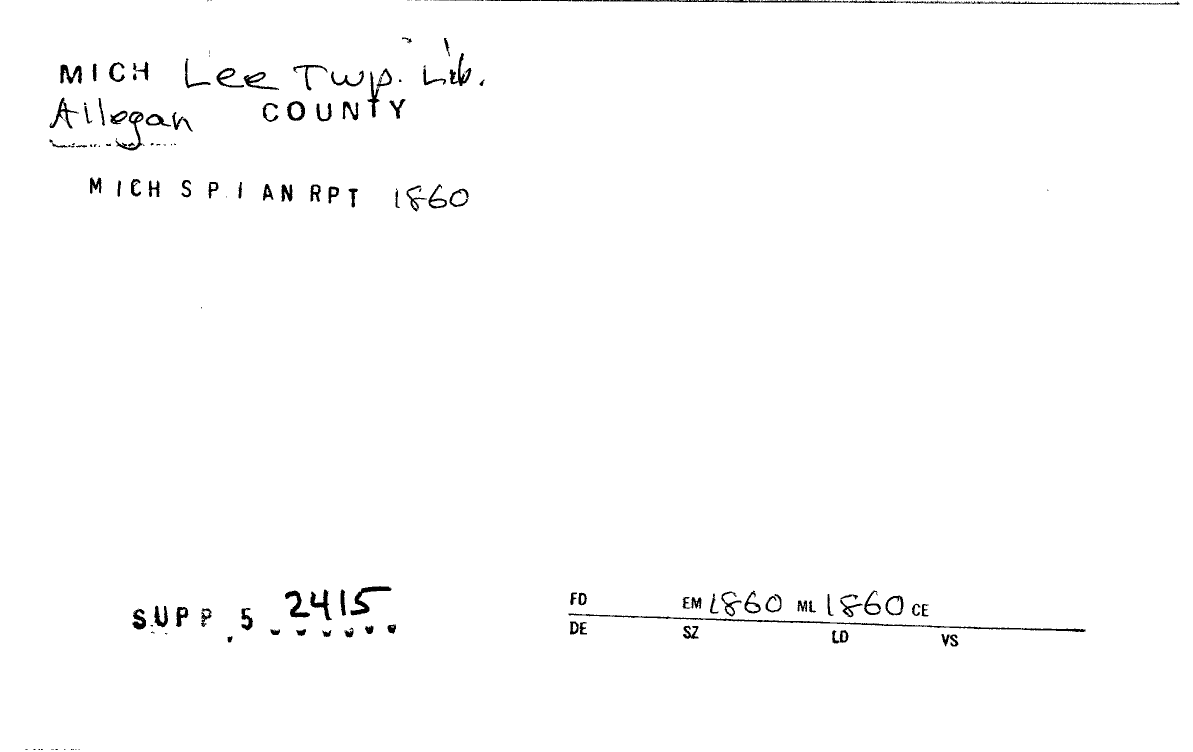 MICH Lee Twp. Lib.
Allegan COUNTY
MICH S P I AN RPT 1860
SUPP 5 2415
FD EM 1860 ML 1860 CE
DE SZ LD VS